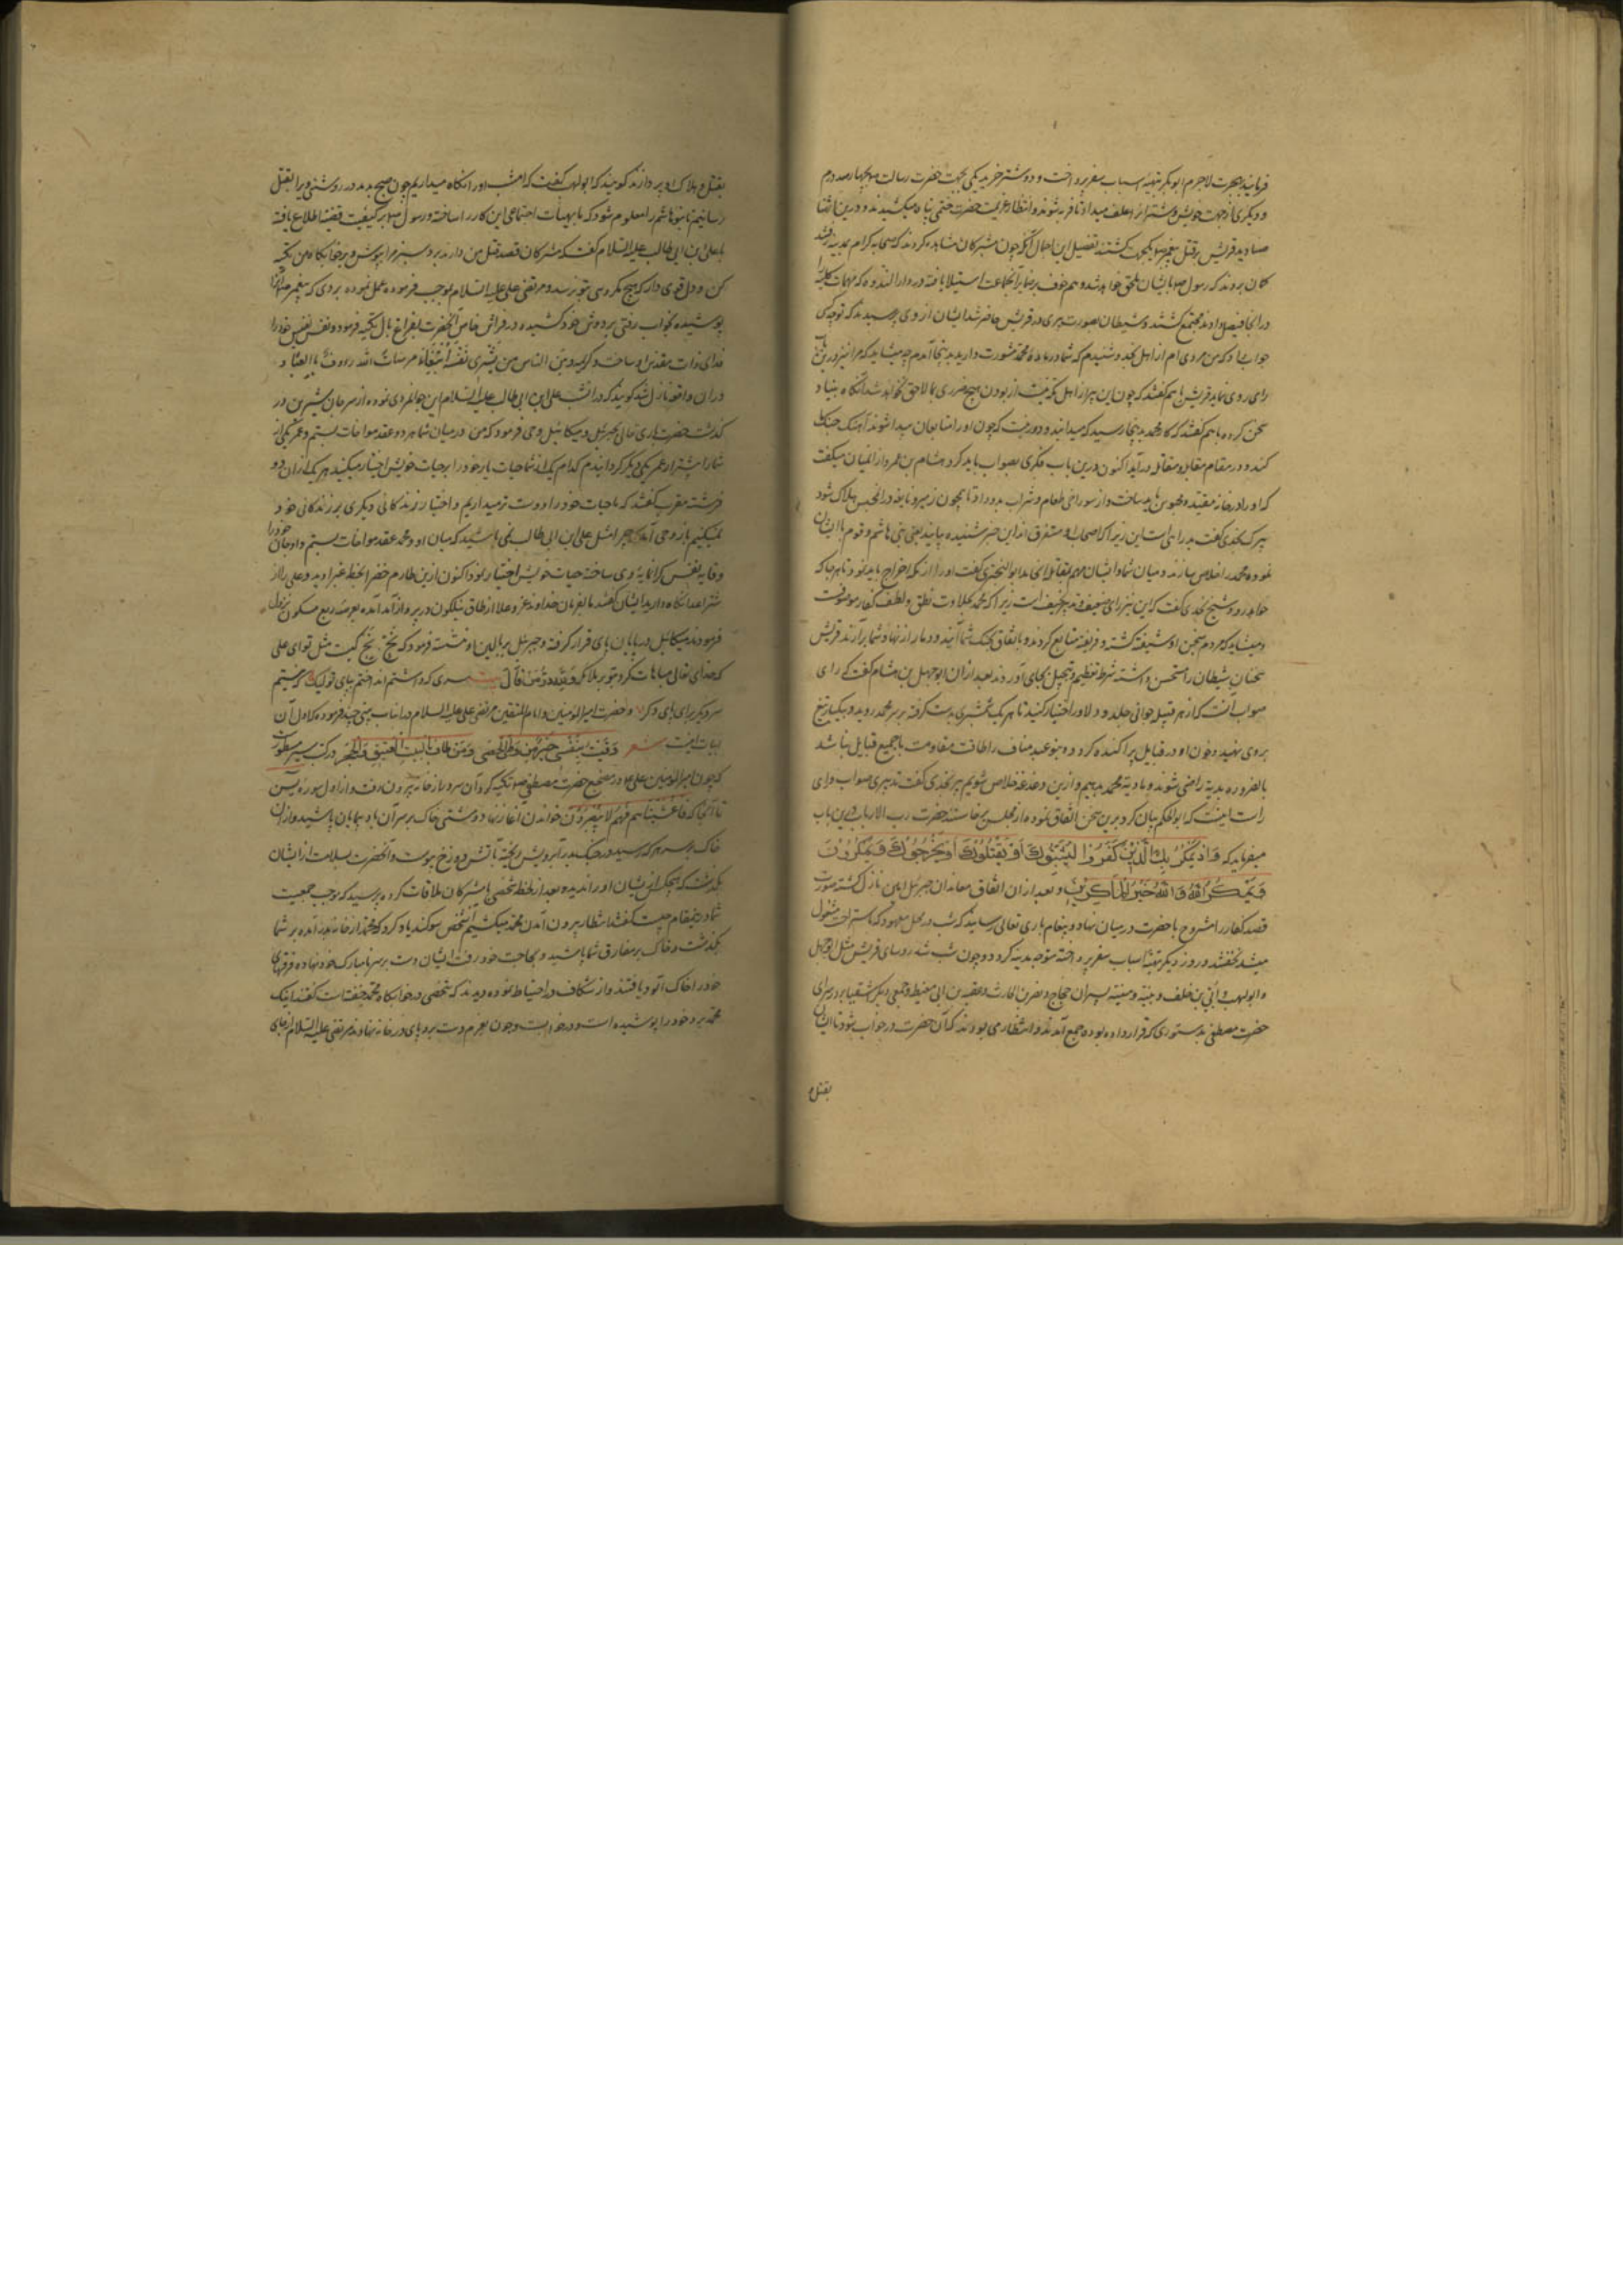 فرمایند بهجرت لاجرم ابوبکر بتهیه اسباب سفر پرداخت و دو شتر خرید یکی بجهت حضرت رسالت صم بچهار صد درم
و دیگری از جهت خویش و شتران را علف میداد تا فربه شوند و انتظار عزیمت حضرت ختمی پناه میکشیدند و درین اثنا
صنادید قریش بر قتل پیغمبر صم یکجهت گشتند تفصیل این اجمال آنکه چون مشرکان مشاهده کردند که صحابه کرام بمدینه رفتند
گمان بردند که رسول صم بایشان ملحق خواهد شد وهم و خوف بر ضمایر آنجماعت استیلا یافته در دار الندوه که مهمات کلیه را
در انجا فیصل دادند مجتمع گشتند و شیطان بصورت پیری در قریش حاضر شد ایشان از وی پرسیدند که تو چه کسی
جواب داد که من مردی ام از اهل نجد و شنیدم که شما در ماده محمد مشورت دارید بدینجا آمدم چه میشاید که مرا نیز درین باب
رای روی نماید قریش با هم گفتند که چون این پیر از اهل مکه نیست از بودن او هیچ ضرری بما لاحق نخواهد شد آنگاه بنیاد
سخن کرده با هم گفتند که کار محمد بدینجا رسید که میدانید و دور نیست که چون او را متابعان پیدا شوند آهنگ جنگ ما
کنند و در مقام مقابله و مقاتله درآید اکنون درین باب فکری بصواب باید کرد هشام بن عمرو از آنمیان میگفت
که او را در خانه مقید و محبوس باید ساخت و از سوراخی طعام و شراب بدو داد تا همچون زهیر و نابغه در انحبس هلاک شود
پیرک نجدی گفت بد رائی است این زیرا که اصحاب او متفرق اند این خبر شنیده بیایند یعنی بنی هاشم و قوم با ایشان
نموده محمد را خلاص سازند و میان شما و ایشان مهم بمقاتله انجامد ابو البختری گفت او را از مکه اخراج باید نمود تا هر جا که
خواهد رود شیخ نجدی گفت که این نیز رای ضعیف و تدبیر خفیف است زیرا که محمد بحلاوت نطق و لطف گفتار موصوفست
و میشاید که مردم بسخن او شیفته گشته و فریفته متابع گردند و باتفاق بجنگ شما آیند و دمار از نهاد شما برآرند قریش
سخنان شیطان را مستحسن داشته شرط تعظیم و تبجیل بجای آوردند بعد ازان ابوجهل بن هشام گفت که رای
صواب آنست که از هر قبیله جوانی جلد و دلاور اختیار کنید تا هر یک شمشیری بدست گرفته بر سر محمد روید و بیکبار تیغ
بر وی نهید و خون او در قبایل پراکنده گردد و بنو عبد مناف را طاقت مقاومت با جمیع قبایل نباشد
بالضروره بدیه راضی شوند و ما دیه محمد بدهیم و ازین دغدغه خلاص شویم پیر نجدی گفت تدبیری صواب و رای
راست اینست که ابو الحکم بیان کرد برین سخن اتفاق نموده از مجلس برخاستند حضرت رب الارباب درین باب
میفرماید که وَاِذْ یَمْکُرُ بِکَ الَّذِیْنَ کَفَرُوْا لِیُثْبِتُوْکَ اَوْ یَقْتُلُوْکَ اَوْ یُخْرِجُوْکَ وَیَمْکُرُوْنَ
وَیَمْکُرُ اللهُ وَاللهُ خَیْرُ الْمَاکِرِیْنَ و بعد ازان اتفاق معاندان جبرئیل امین نازل گشته صورت
قصد کفار را مشروح با حضرت در میان نهاد و پیغام باری تعالی رسانید که شب در محل معهود که باستراحت مشغول
میشد نخفتد و روز دیگر تهیه اسباب سفر پرداخته متوجه مدینه گردد و چون شب شد روسای قریش مثل ابوجهل
و ابولهب و اُبَیّ بن خلف و نبیه و منبه پسران حجاج و نضر بن الحارث و عقبه بن ابی معیط و جمعی دیگر از اشقیا بر در سرای
حضرت مصطفی بدستوری که قرار داده بودند جمع آمدند و انتظار می بودند که آن حضرت در خواب شود تا ایشان
بقتل و
بقتل و هلاک او پردازند گویند که ابولهب گفت که امشب او را نگاه میداریم چون صبح بدمد در روشنی ویرا بقتل
رسانیم تا بنو هاشم را معلوم شود که ما بهیأت اجتماعی این کار را ساخته و رسول صم بر کیفیت قضیه اطلاع یافته
با علی بن ابی طالب علیه السلام گفت که مشرکان قصد قتل من دارند برد سبز مرا بپوش و بر خوابگاه من تکیه
کن و دل قوی دار که هیچ مکروهی بتو نرسد و مرتضی علی علیه السلام بموجب فرموده عمل نموده بردی که پیغمبر صم آنرا
پوشیده بخواب رفتی بر دوش خود کشیده در فراش خاص آنحضرت بفراغ بال تکیه فرمود و نفس نفیس خود را
فدای ذات مقدس او ساخت و کریمه ومن الناس من یشری نفسه ابتغاء مرضات الله والله رءوف بالعباد
در ان واقعه نازل شد گویند که در انشب علی بن ابی طالب علیه السلام این جوانمردی نموده از سر جان شیرین در
گذشت حضرت باری تعالی بجبرئیل و میکائیل وحی فرمود که من در میان شما هر دو عقد مواخات بستم و عمر یکی از
شما را بیشتر از عمر یکی دیگر گردانیدم کدام یک از شما حیات یار خود را بر حیات خویش اختیار میکنید هر یک از ان دو
فرشته مقرب گفتند که ما حیات خود را دوست تر میداریم و اختیار زندگانی دیگری بر زندگانی خود
نمیکنیم باز وحی آمد که چرا مثل علی ابن ابی طالب نمی باشید که میان او و محمد عقد مواخات بستم و او جان خود را
وقایه نفس گرانمایه وی ساخته حیات خویش اختیار ننمود اکنون ازین طارم خضرا بخطه غبرا روید و علی را از
شر اعدا نگاه دارید ایشان گفتند ما بفرمان خداوند عز و علا از طاق نیلگون در پرواز آمده بعرصه ربع مسکون نزول
فرمودند میکائیل در پایان پای قرار گرفته و جبرئیل بر بالین او نشسته فرمود که بخ بخ کیست مثل تو ای علی
که خدای تعالی مباهات کرد بتو بر ملائکه وَلِلّٰهِ دَرُّ مَنْ قَالَ بیت سری که داشتم انداختم بپای تو لیک که نیستم
سر دیگر برای پای دگر و حضرت امیر المومنین و امام المتقین مرتضی علی علیه السلام در انباب بیتی چند فرموده که اول آن
ابیات اینست شعر وَقَیْتُ بِنَفْسِیْ خَیْرَ مَنْ وَطِئَ الْحَصٰی وَمَنْ طَافَ بِالْبَیْتِ الْعَتِیْقِ وَالْحَجَرِ در کتب سیر مسطورست
که چون امیر المومنین علی عم در مضجع حضرت مصطفی صم تکیه کرد آن سرور از خانه بیرون رفت و از اول سوره یس
تا آنجا که فَاَغْشَیْنَاهُمْ فَهُمْ لَا یُبْصِرُوْنَ خواندن آغاز نهاد و مشتی خاک بر سر آن باد پیمایان پاشید و ازان
خاک بر سر هر که رسید در جنگ بدر آبرویش ریخته بآتش دوزخ پیوست و آنحضرت بسلامت از ایشان
بگذشت که هیچکس از ایشان او را ندید و بعد از لحظه شخصی با مشرکان ملاقات کرده پرسید که موجب جمعیت
شما درینمقام چیست گفتند انتظار بیرون آمدن محمد میکشیم آنشخص سوگند یاد کرد که محمد از خانه بدر آمده بر شما
بگذشت و خاک بر مفارق شما پاشید و بحاجت خود رفت ایشان دست بر سر نامبارک خود نهاده فرقهای
خود را خاک آلود یافتند و از شکاف در احتیاط نموده دیدند که شخصی در خوابگاه محمد خفته است گفتند اینک
محمد برد خود را پوشیده است و در خوابست و چون بعزم دست برد پای در خانه نهادند مرتضی علیه السلام از جای